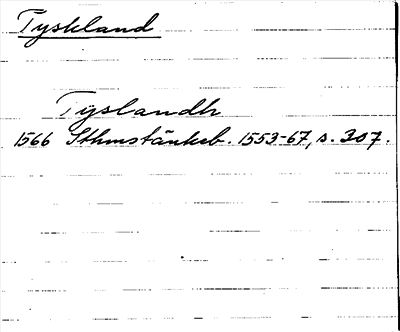 Tyskland
Tÿslandh
1566 Sthmstänkeb. 1553-67, s. 307.